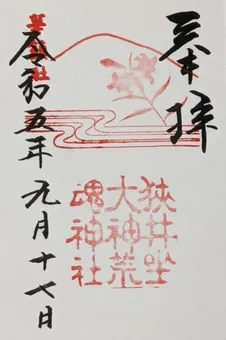 奉拝
狭井坐
大神荒
魂神社
令和五年元月十七日